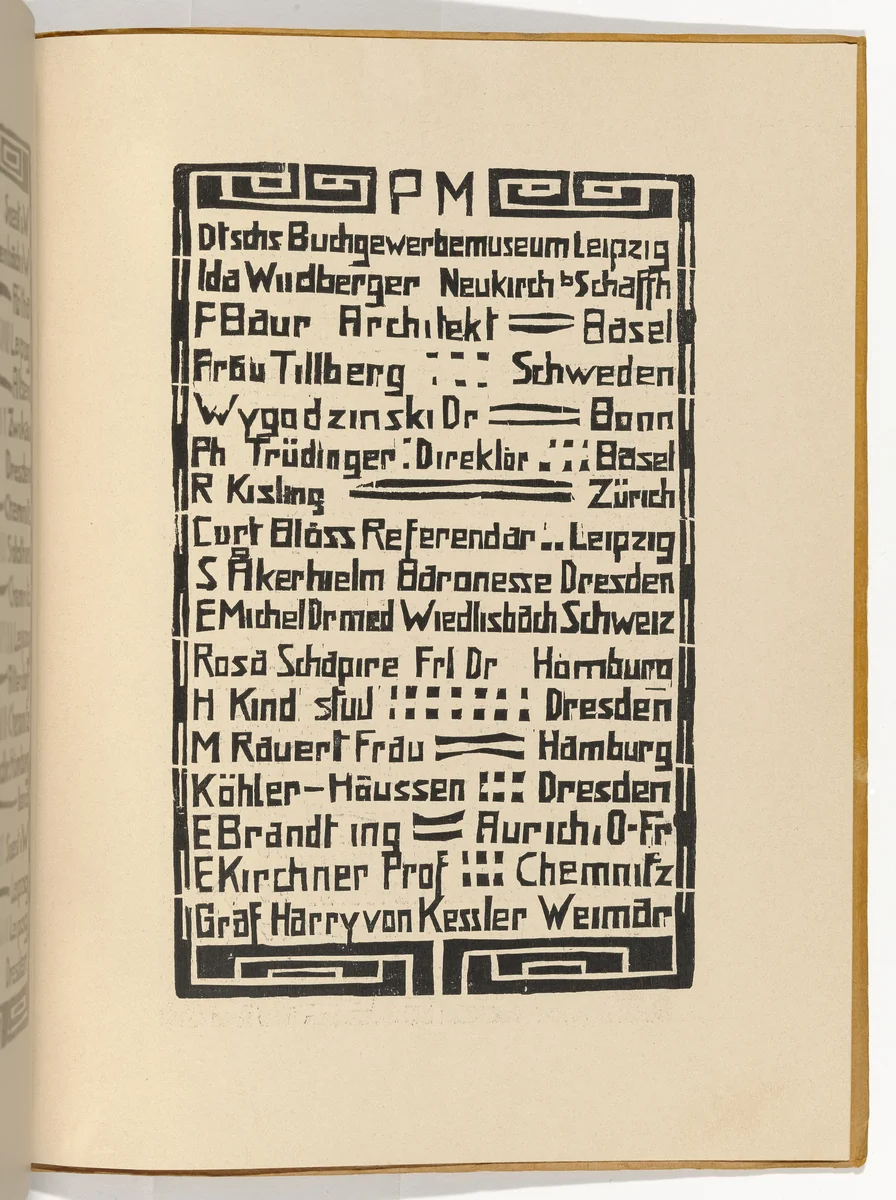 PM
Dtschs Buchgewerbemuseum Leipzig
Ida Wildberger Neukirch b Schaffh
F Baur Architekt Basel
Frau Tillberg Schweden
Wygodzinski Dr Bonn
Ph Trüdinger Direktor Basel
R Kisling Zürich
Curt Blöss Referendar Leipzig
S Åkerhielm Baronesse Dresden
E Michel Dr med Wiedlisbach Schweiz
Rosa Schapire Frl Dr Hamburg
H Kind stud Dresden
M Rauert Frau Hamburg
Köhler-Häussen Dresden
E Brandt ing Aurich i O-Fr
E Kirchner Prof Chemnitz
Graf Harry von Kessler Weimar